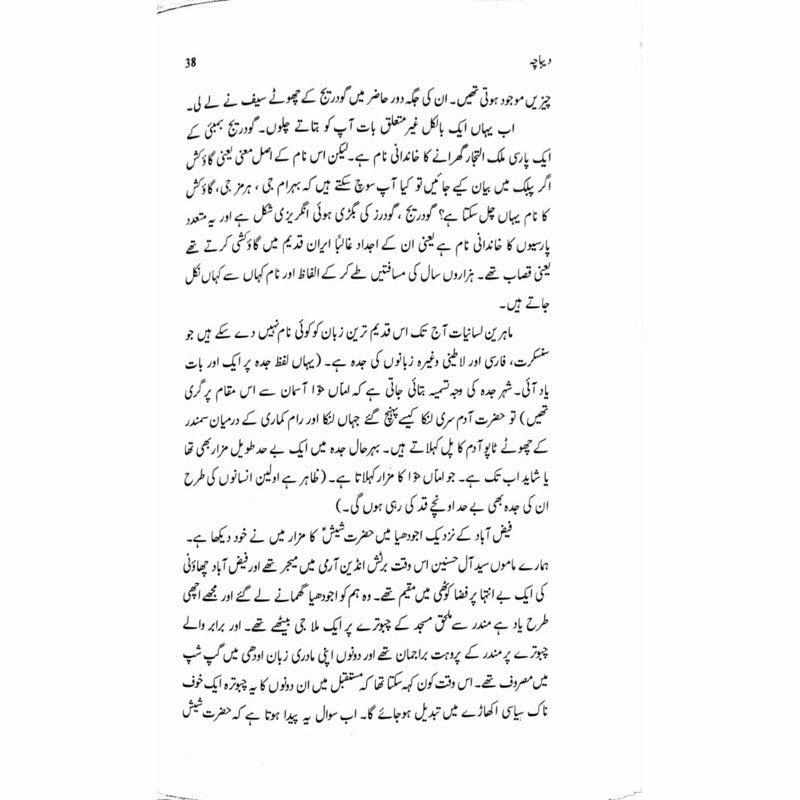 دیباچہ 38
چیزیں موجود ہوتی تھیں۔ ان کی جگہ دور حاضر میں گودریج کے چھوٹے سیف نے لے لی۔
اب یہاں ایک بالکل غیر متعلق بات آپ کو بتاتے چلوں۔ گودریج بمبئی کے
ایک پارسی ملک التجار گھرانے کا خاندانی نام ہے۔ لیکن اس نام کے اصل معنی یعنی گاؤکش
اگر پبلک میں بیان کیے جائیں تو کیا آپ سوچ سکتے ہیں کہ بہرام جی، ہرمز جی، گاؤکش
کا نام یہاں چل سکتا ہے؟ گودریج، گودرز کی بگڑی ہوئی انگریزی شکل ہے اور یہ متعدد
پارسیوں کا خاندانی نام ہے یعنی ان کے اجداد غالباً ایران قدیم میں گاؤکشی کرتے تھے
یعنی قصاب تھے۔ ہزاروں سال کی مسافتیں طے کر کے الفاظ اور نام کہاں سے کہاں نکل
جاتے ہیں۔
ماہرین لسانیات آج تک اس قدیم ترین زبان کو کوئی نام نہیں دے سکے ہیں جو
سنسکرت، فارسی اور لاطینی وغیرہ زبانوں کی جدہ ہے۔ (یہاں لفظ جدہ پر ایک اور بات
یاد آئی۔ شہر جدہ کی وجہ تسمیہ بتائی جاتی ہے کہ اماں حوّا آسمان سے اس مقام پر گری
تھیں) تو حضرت آدم سری لنکا کیسے پہنچ گئے جہاں لنکا اور رام کماری کے درمیان سمندر
کے چھوٹے ٹاپو آدم کا پل کہلاتے ہیں۔ بہرحال جدہ میں ایک بے حد طویل مزار بھی تھا
یا شاید اب تک ہے۔ جو اماں حوّا کا مزار کہلاتا ہے۔ (ظاہر ہے اولین انسانوں کی طرح
ان کی جدہ بھی بے حد اونچے قد کی رہی ہوں گی۔)
فیض آباد کے نزدیک اجودھیا میں حضرت شیشؑ کا مزار میں نے خود دیکھا ہے۔
ہمارے ماموں سید آل حسنین اس وقت برٹش انڈین آرمی میں میجر تھے اور فیض آباد چھاؤنی
کی ایک بے انتہا پرفضا کوٹھی میں مقیم تھے۔ وہ ہم کو اجودھیا گھمانے لے گئے اور مجھے اچھی
طرح یاد ہے مندر سے ملحق مسجد کے چبوترے پر ایک ملا جی بیٹھے تھے۔ اور برابر والے
چبوترے پر مندر کے پروہت براجمان تھے اور دونوں اپنی مادری زبان اودھی میں گپ شپ
میں مصروف تھے۔ اس وقت کون کہہ سکتا تھا کہ مستقبل میں ان دونوں کا یہ چبوترہ ایک خوف
ناک سیاسی اکھاڑے میں تبدیل ہو جائے گا۔ اب سوال یہ پیدا ہوتا ہے کہ حضرت شیش